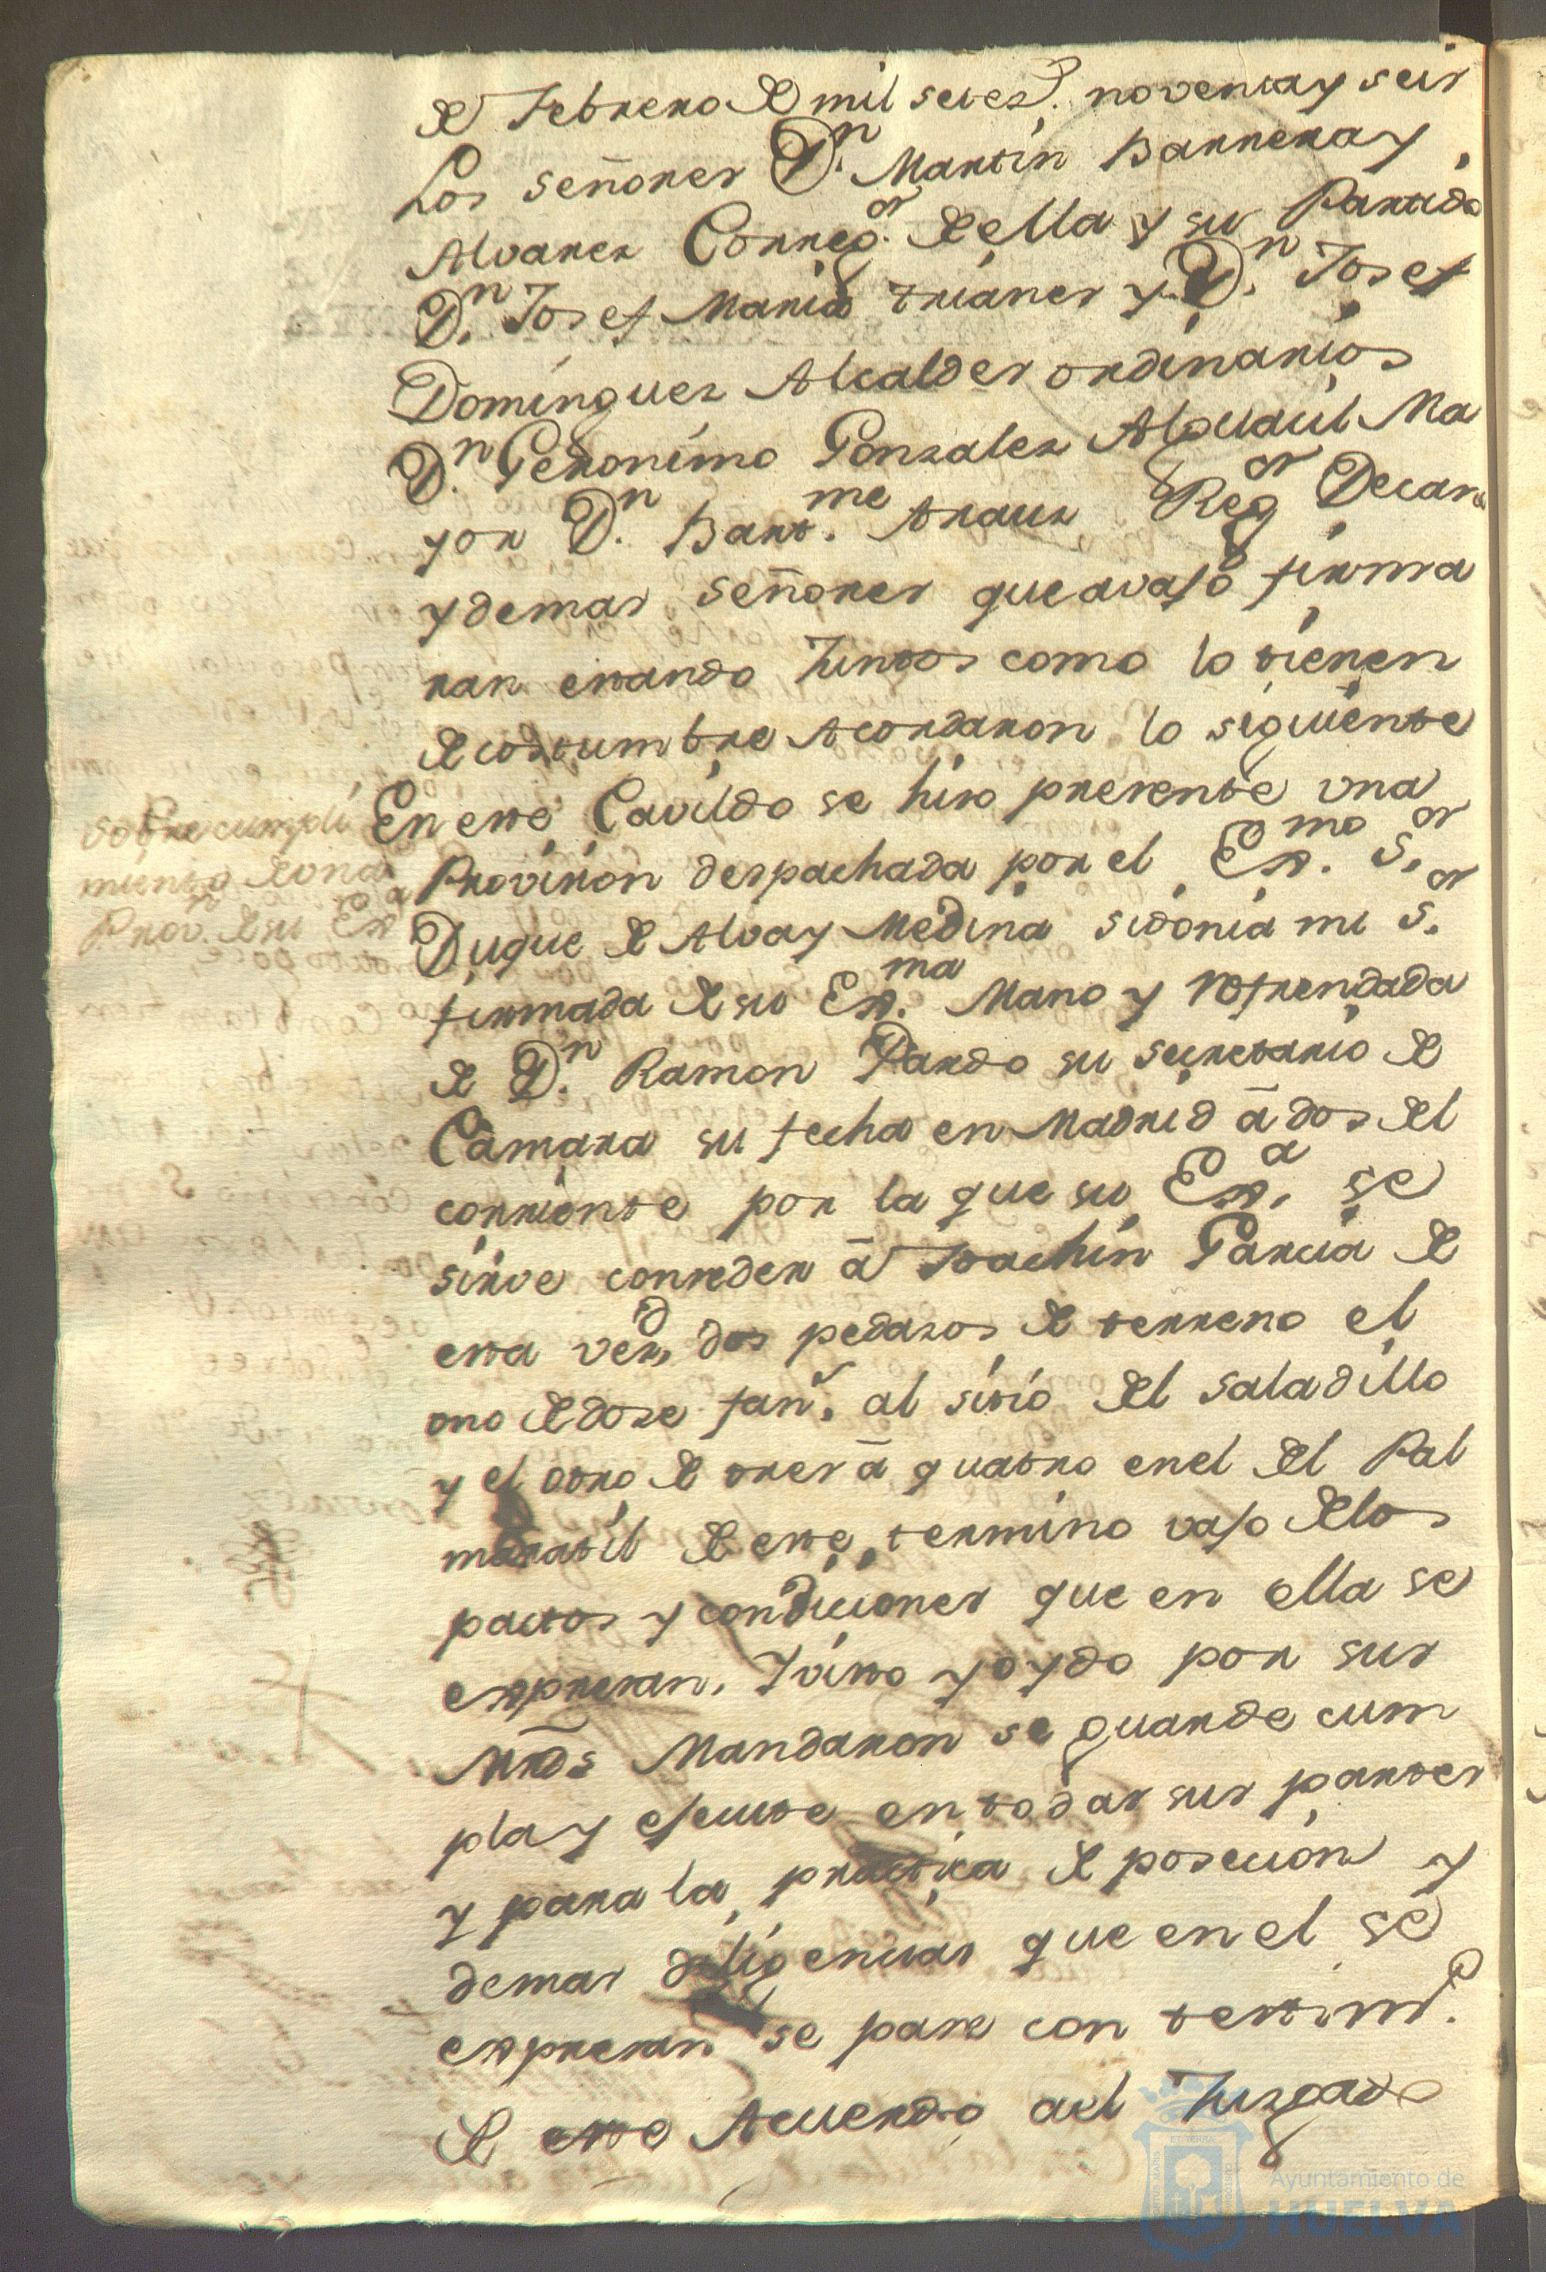 de Febrero de mil setez.s noventa y seis
Los señores D.n Martin Barrera y
Alvarez Correg.or de ella y su Partido
D.n Josef Maria trianes y D.n Josef
Dominguez Alcaldes ordinarios
D.n Geronimo Gonzalez Alguacil Ma
yor D.n Bart.me Arauz Reg.or Decano
y demas señores que avajo firma
ran estando Juntos como lo tienen
de costumbre Acordaron lo siguiente
sobre cumpli
miento de una
Prov.n de su Ex.a
En este Cavildo se hizo presente una
Provision despachada por el Ex.mo S.or
Duque de Alva y Medina sidonia mi S.or
firmada de su Ex.ma Mano y refrendada
de D.n Ramon Pardo su secretario de
Camara su fecha en Madrid ā dos del
corriente por la que su Ex.a se
sirve conseder ā Joachin Garcia de
esta vez.d dos pedazos de terreno el
uno de doze fan.s al sitio del saladillo
y el otro de tres ā quatro en el del Pal
maratil de este termino vajo de los
pactos y condiciones que en ella se
expresan. Y visto y oydo por sus
Mrds Mandaron se guarde cum
pla y ejecute en todas sus partes
y para la practica de posecion y
demas diligencias que en el se
expresan se pase con testim.o
de este Acuerdo ael Juzgado
Ayuntamiento de
HUELVA